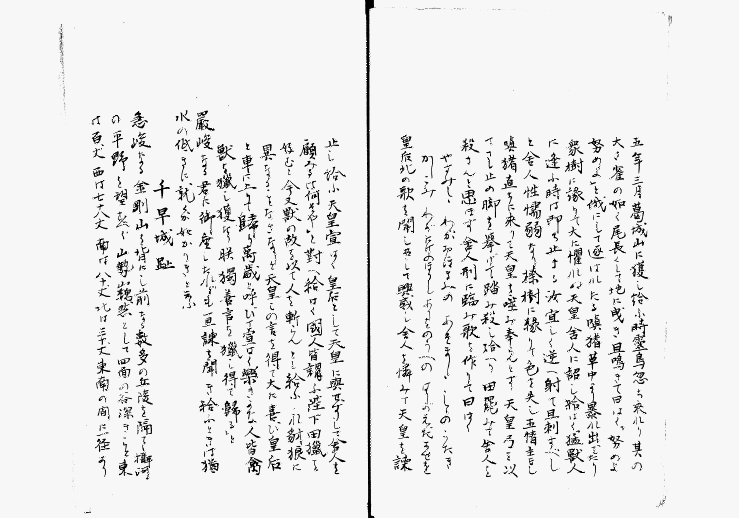 五年三月葛城山に獲し給ふ時靈鳥忽ち来れり其の
大さ雀の如く尾長くして地に曳き且鳴きて曰はく努のよ
努のよと俄にして逐はれたる嗔猪草中より暴れ出でたり
獵人樹に縁りて大に懼れぬ天皇舎人に詔し給はく猛獣人
に逢ふ時は即ち止まる汝宜しく逆へ射て且刺すべし
と舎人性懦弱なり榛樹に縁りて色を失し五情主なし
嗔猪直に来つて天皇を噬み奉らんとす天皇弓を以
て之を止め脚を擧げて踏み殺し給へり田罷みて舎人を
殺さんと思ほす舎人刑に臨み歌を作りて曰はく
やすみしゝわがおほきみの あそましゝしゝのうたき
かしこみ わがにげのぼりし ありをのうへの はりがえだあせを
皇后此の歌を聞しめして興感し舎人を憐みて天皇を諫
止し給ふ天皇宣はく皇后として天皇に與せずして舎人を
顧みるは何ぞやと對へ給はく國人皆謂ふ陛下田獵を
好むと今又獣の故を以て人を斬らんとし給ふ これ豺狼に
異なることなきなりと天皇この言を得て大に喜び皇后
と車に上りて歸り萬歳と呼びて宣はく樂きかな人皆禽
獸を獵し獲るに朕獨善言を獵し得て歸ると
嚴峻なる君に御座したれども亦諫を聞き給ふときは猶
水の低きに就くが如かりきと云ふ
千早城趾
急峻なる金剛山を背にし前なる數多の丘陵を隔て河
の平野を望ぶべく山勢巍然として四面の谷深きこと東
は百丈西は七十八丈南は八十丈北は三十丈東南の間に一径あり